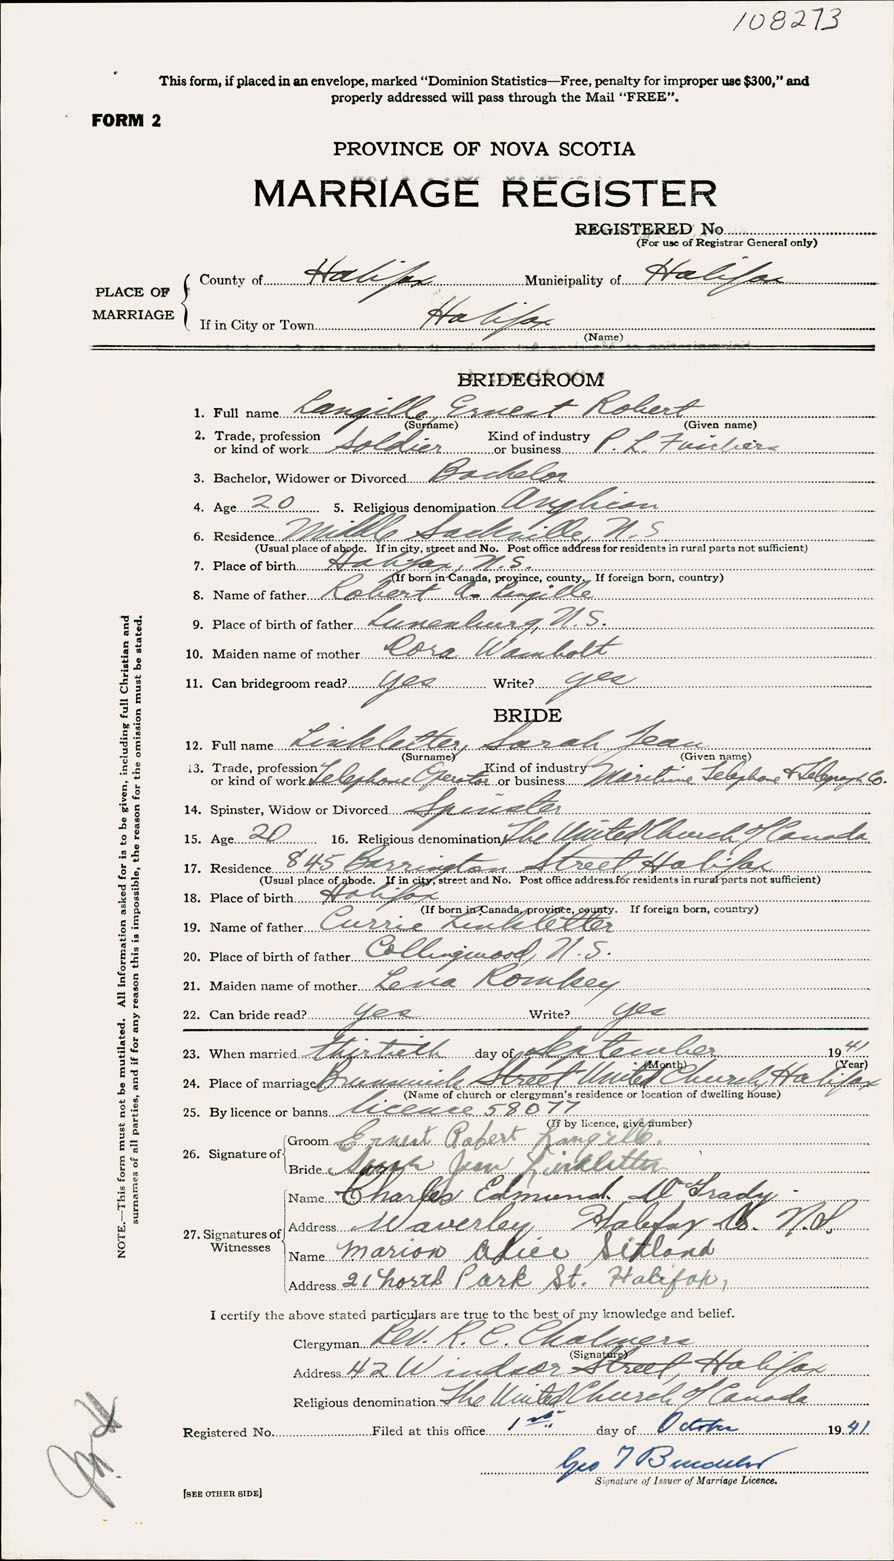 108273
This form, if placed in an envelope, marked "Dominion Statistics—Free, penalty for improper use $300," and
properly addressed will pass through the Mail "FREE".
FORM 2
PROVINCE OF NOVA SCOTIA
MARRIAGE REGISTER
REGISTERED No.
(For use of Registrar General only)
PLACE OF MARRIAGE
County of Halifax Municipality of Halifax
If in City or Town Halifax
(Name)
BRIDEGROOM
1. Full name Langille, Ernest Robert
(Surname) (Given name)
2. Trade, profession or kind of work Soldier Kind of industry or business P. L. Fusiliers
3. Bachelor, Widower or Divorced Bachelor
4. Age 20 5. Religious denomination Anglican
6. Residence Middle Sackville, N.S.
(Usual place of abode. If in city, street and No. Post office address for residents in rural parts not sufficient)
7. Place of birth Halifax, N.S.
(If born in Canada, province, county. If foreign born, country)
8. Name of father Robert A. Langille
9. Place of birth of father Lunenburg, N.S.
10. Maiden name of mother Dora Wambolt
11. Can bridegroom read? yes Write? yes
BRIDE
12. Full name Linkletter, Sarah Jean
(Surname) (Given name)
13. Trade, profession or kind of work Telephone Operator Kind of industry or business Maritime Telephone & Telegraph Co.
14. Spinster, Widow or Divorced Spinster
15. Age 20 16. Religious denomination The United Church of Canada
17. Residence 845 Barrington Street Halifax
(Usual place of abode. If in city, street and No. Post office address for residents in rural parts not sufficient)
18. Place of birth Halifax
(If born in Canada, province, county. If foreign born, country)
19. Name of father Currie Linkletter
20. Place of birth of father Collingwood, N.S.
21. Maiden name of mother Lena Romkey
22. Can bride read? yes Write? yes
23. When married thirtieth day of September 1941
(Month) (Year)
24. Place of marriage Brunswick Street United Church, Halifax
(Name of church or clergyman's residence or location of dwelling house)
25. By licence or banns licence 58077
(If by licence, give number)
26. Signature of
Groom Ernest Robert Langille.
Bride Sarah Jean Linkletter
27. Signatures of Witnesses
Name Charles Edmund McGrady
Address Waverley Halifax Co. N.S.
Name Marion Alice Sitland
Address 21 North Park St. Halifax,
I certify the above stated particulars are true to the best of my knowledge and belief.
Clergyman Rev. R. C. Chalmers
(Signature)
Address 42 Windsor Street, Halifax
Religious denomination The United Church of Canada
Registered No. Filed at this office 1st day of October 1941
Geo T
Signature of Issuer of Marriage Licence.
[SEE OTHER SIDE]
NOTE.—This form must not be mutilated. All information asked for is to be given, including full Christian and
surnames of all parties, and if for any reason this is impossible, the reason for the omission must be stated.